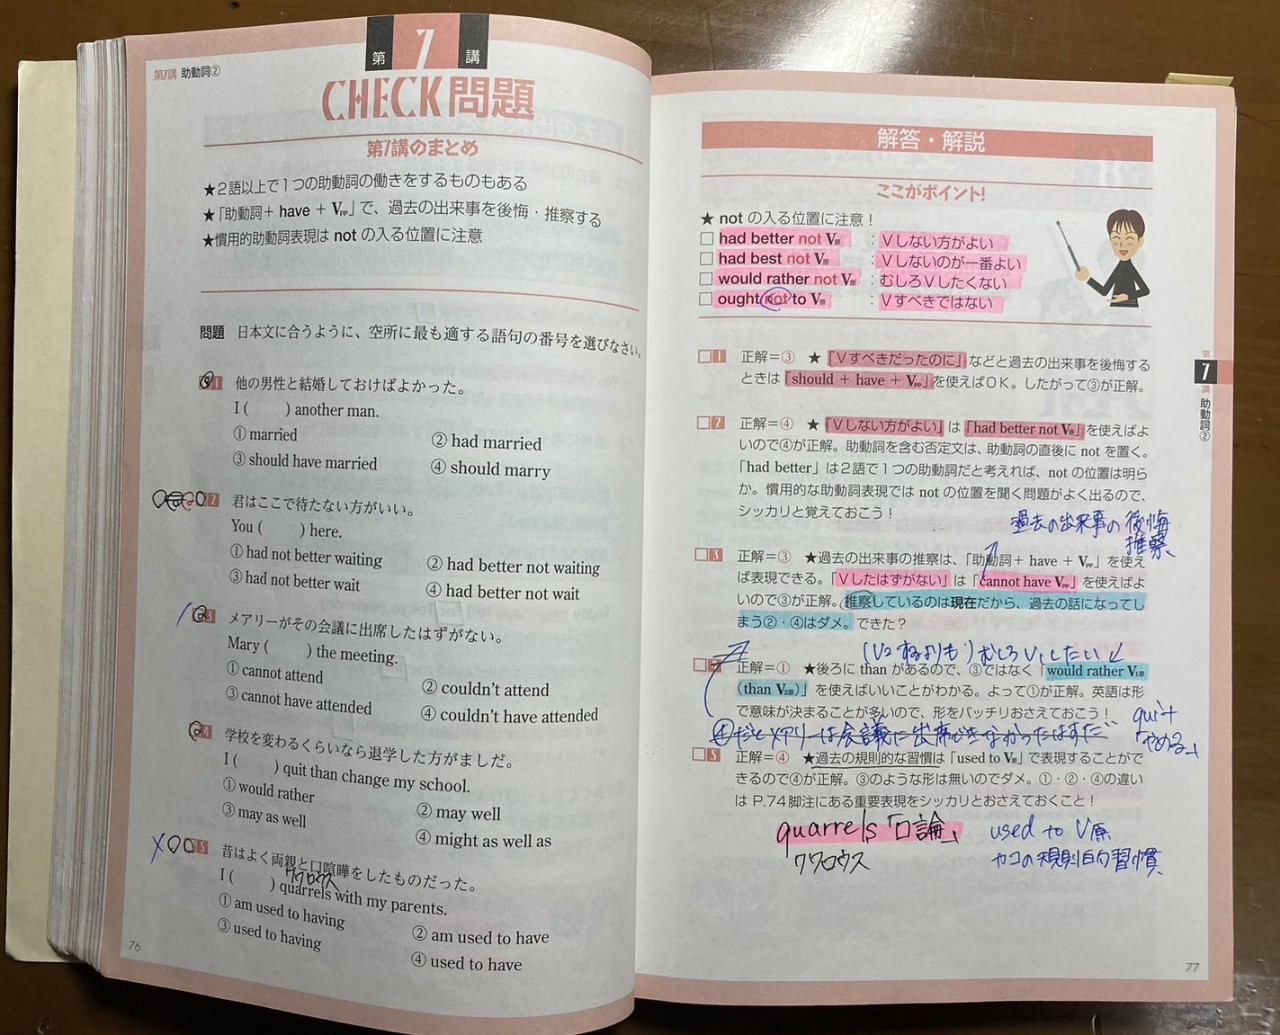 第7講 助動詞②
第 7 講
CHECK問題
第7講のまとめ
★2語以上で1つの助動詞の働きをするものもある
★「助動詞+ have + Vpp」で、過去の出来事を後悔・推察する
★慣用的助動詞表現は not の入る位置に注意
問題 日本文に合うように、空所に最も適する語句の番号を選びなさい。
1 他の男性と結婚しておけばよかった。
I ( ) another man.
① married ② had married
③ should have married ④ should marry
2 君はここで待たない方がいい。
You ( ) here.
① had not better waiting ② had better not waiting
③ had not better wait ④ had better not wait
3 メアリーがその会議に出席したはずがない。
Mary ( ) the meeting.
① cannot attend ② couldn't attend
③ cannot have attended ④ couldn't have attended
4 学校を変わるくらいなら退学した方がましだ。
I ( ) quit than change my school.
① would rather ② may well
③ may as well ④ might as well as
5 昔はよく両親と口喧嘩をしたものだった。
クワロウス
I ( ) quarrels with my parents.
① am used to having ② am used to have
③ used to having ④ used to have
76
解答・解説
ここがポイント!
★ not の入る位置に注意！
□ had better not V原 : Vしない方がよい
□ had best not V原 : Vしないのが一番よい
□ would rather not V原 : むしろVしたくない
□ ought not to V原 : Vすべきではない
□1 正解=③ ★「Vすべきだったのに」などと過去の出来事を後悔する
ときは「should + have + Vpp」を使えばOK。したがって③が正解。
□2 正解=④ ★「Vしない方がよい」は「had better not V原」を使えばよ
いので④が正解。助動詞を含む否定文は、助動詞の直後に not を置く。
「had better」は2語で1つの助動詞だと考えれば、not の位置は明ら
か。慣用的な助動詞表現では not の位置を聞く問題がよく出るので、
シッカリと覚えておこう！
過去の出来事の後悔
推察
□3 正解=③ ★過去の出来事の推察は、「助動詞+ have + Vpp」を使え
ば表現できる。「Vしたはずがない」は「cannot have Vpp」を使えばよ
いので③が正解。推察しているのは現在だから、過去の話になってし
まう②・④はダメ。できた？
(V2するよりも)むしろV1したい
□4 正解=① ★後ろに than があるので、③ではなく「would rather V1原
(than V2原)」を使えばいいことがわかる。よって①が正解。英語は形
で意味が決まることが多いので、形をバッチリおさえておこう！
quit
やめる
④だとメアリーは会議に出席できなかったはずだ
□5 正解=④ ★過去の規則的な習慣は「used to V原」で表現することがで
きるので④が正解。③のような形は無いのでダメ。①・②・④の違い
は P.74 脚注にある重要表現をシッカリとおさえておくこと！
quarrels「口論」
クワロウス
used to V原
カコの規則的習慣
第
7
講
助動詞②
77